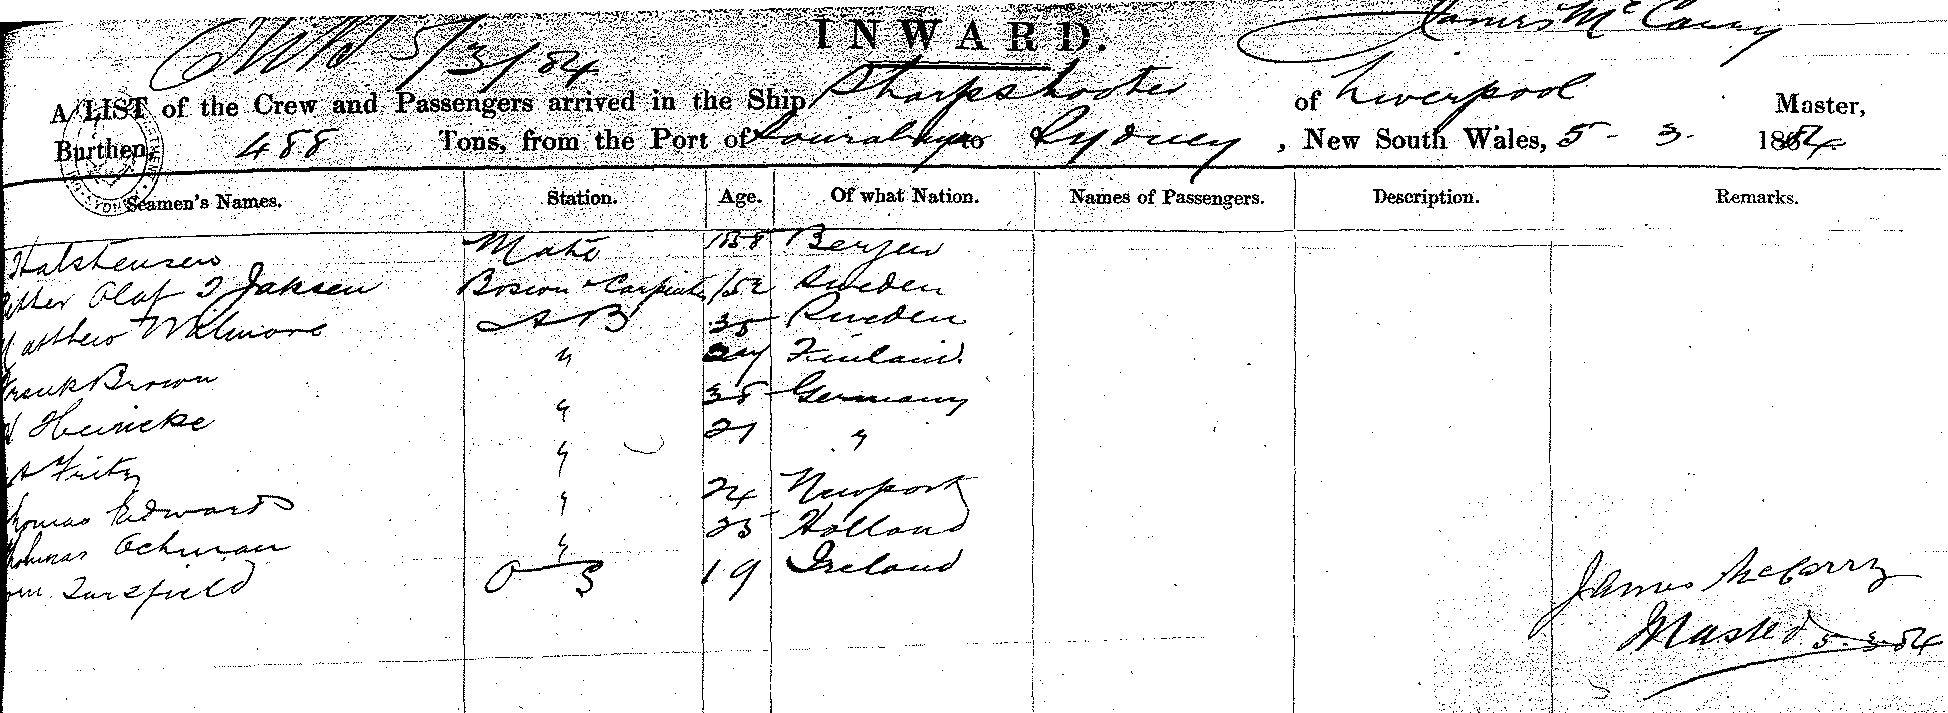 INWARD.
5/3/84
James McCarry
A LIST of the Crew and Passengers arrived in the Ship Sharpshooter of Liverpool Master,
Burthen, 488 Tons, from the Port of to Sydney, New South Wales, 5. 3. 1884
Seamen's Names. Station. Age. Of what Nation. Names of Passengers. Description. Remarks.
Halstensen Mate Bergen
Olaf Jaksen Bosun & Carpenter /52 Sweden
Matthew Wilmore AB 35 Sweden
" Finland
Frank Brown " 38 Germany
Heinicke " 21 "
A Fritz
" 24 Newport
Thomas Edwards " 25 Holland
Thomas Ochman
O S 19 Ireland
Tursfield
James McCarry
Master 5-3-84